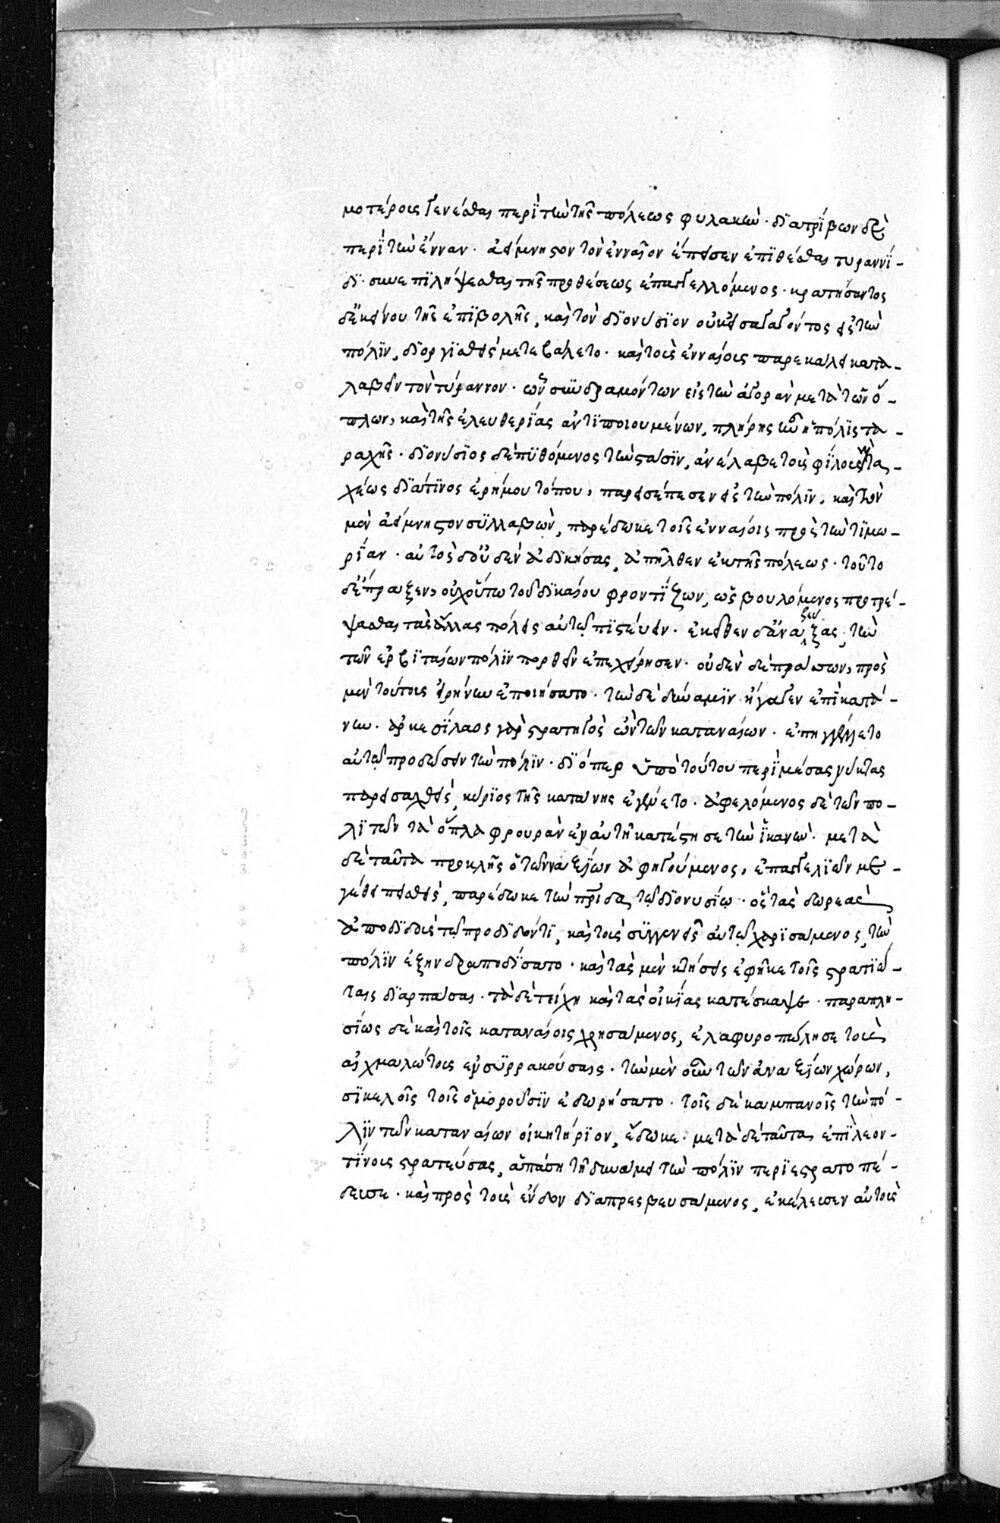 μοτέροις γενέσθαι περὶ τὴν τῆς πόλεως φυλακὴν· διατρίβων δὲ
περὶ τὴν ἔνναν· ἀείμνηστον τὸν ἐνναῖον ἔπεισεν ἐπιθέσθαι τυραννί-
δι· συνεπιλήψεσθαι τῆς προθέσεως ἐπαγγελλόμενος· κρατήσαντος
δ' ἐκείνου τῆς ἐπιβολῆς, καὶ τὸν διονύσιον οὐκ εἰσαγαγόντος εἰς τὴν
πόλιν, διοργισθεὶς μετεβάλετο· καὶ τοὺς ἐνναίοις παρεκάλει κατα-
λαβεῖν τὸν τύραννον· ὧν συνδραμόντων εἰς τὴν ἀγορὰν μετὰ τῶν ὅ-
πλων, καὶ τῆς ἐλευθερίας ἀντιποιουμένων, πλήρης ἦν ἡ πόλις τα-
ραχῆς· διονύσιος δὲ πυθόμενος τὴν στάσιν, ἀνέλαβε τοὺς φίλους καὶ τα-
χέως διά τινος ἐρήμου τόπου, παρεισέπεσεν εἰς τὴν πόλιν, καὶ τὸν
μὲν ἀείμνηστον συλλαβὼν, παρέδωκε τοῖς ἐνναίοις πρὸς τὴν τιμω-
ρίαν· αὐτὸς δ' οὐδὲν ἀδικήσας, ἀπῆλθεν ἐκ τῆς πόλεως· τοῦτο
δ' ἔπραξεν, οὐχ οὕτω τοῦ δικαίου φροντίζων, ὡς βουλόμενος προτρέ-
ψασθαι τὰς ἄλλας πόλεις αὐτῷ πιστεύειν· ἐκεῖθεν δ' ἀναζεύξας, τὴν
τῶν ἐρβιταίων πόλιν πορθεῖν ἐπεχείρησεν· οὐδὲν δὲ πράττων, πρὸς
μὲν τούτοις εἰρήνην ἐποιήσατο· τὴν δὲ δύναμιν ἤγαγεν ἐπὶ κατά-
νην· ἀρκεσίλαος γὰρ στρατηγὸς ὢν τῶν καταναίων· ἐπηγγέλλετο
αὐτῷ προδώσειν τὴν πόλιν· διόπερ ὑπὸ τούτου περὶ μέσας νύκτας
παρεισαχθεὶς, κύριος τῆς κατάνης ἐγένετο· ἀφελόμενος δὲ τῶν πο-
λιτῶν τὰ ὅπλα φρουρὰν ἐν αὐτῇ κατέστησε τὴν ἱκανὴν· μετὰ
δὲ ταῦτα προκλῆς ὁ τῶν ναξίων ἀφηγούμενος, ἐπαγγελιῶν με-
γέθει πεισθεὶς, παρέδωκε τὴν πατρίδα τῷ διονυσίῳ· ὃς τὰς δωρεὰς
ἀποδιδοὺς τῷ προδιδόντι, καὶ τοὺς συγγενεῖς αὐτῷ χαρισάμενος, τὴν
πόλιν ἐξηνδραποδίσατο· καὶ τὰς μὲν κτήσεις ἐφῆκε τοῖς στρατιώ-
ταις διαρπάσαι· τὰ δὲ τείχη καὶ τὰς οἰκίας κατέσκαψε· παραπλη-
σίως δὲ καὶ τοῖς καταναίοις χρησάμενος, ἐλαφυροπώλησε τοὺς
αἰχμαλώτοις ἐν συρρακούσαις· τὴν μὲν οὖν τῶν ἀναξίων χώραν,
σικελοῖς τοῖς ὁμοροῦσιν ἐδωρήσατο· τοῖς δὲ καμπανοῖς τὴν πό-
λιν τῶν καταναίων οἰκητήριον, ἔδωκε· μετὰ δὲ ταῦτα ἐπὶ λεον-
τίνοις στρατεύσας, ἁπάσῃ τῇ δυνάμει τὴν πόλιν περιεστρατοπέ-
δευσε· καὶ πρὸς τοὺς ἔνδον διαπρεσβευσάμενος, ἐκέλευσεν αὐτοὺς